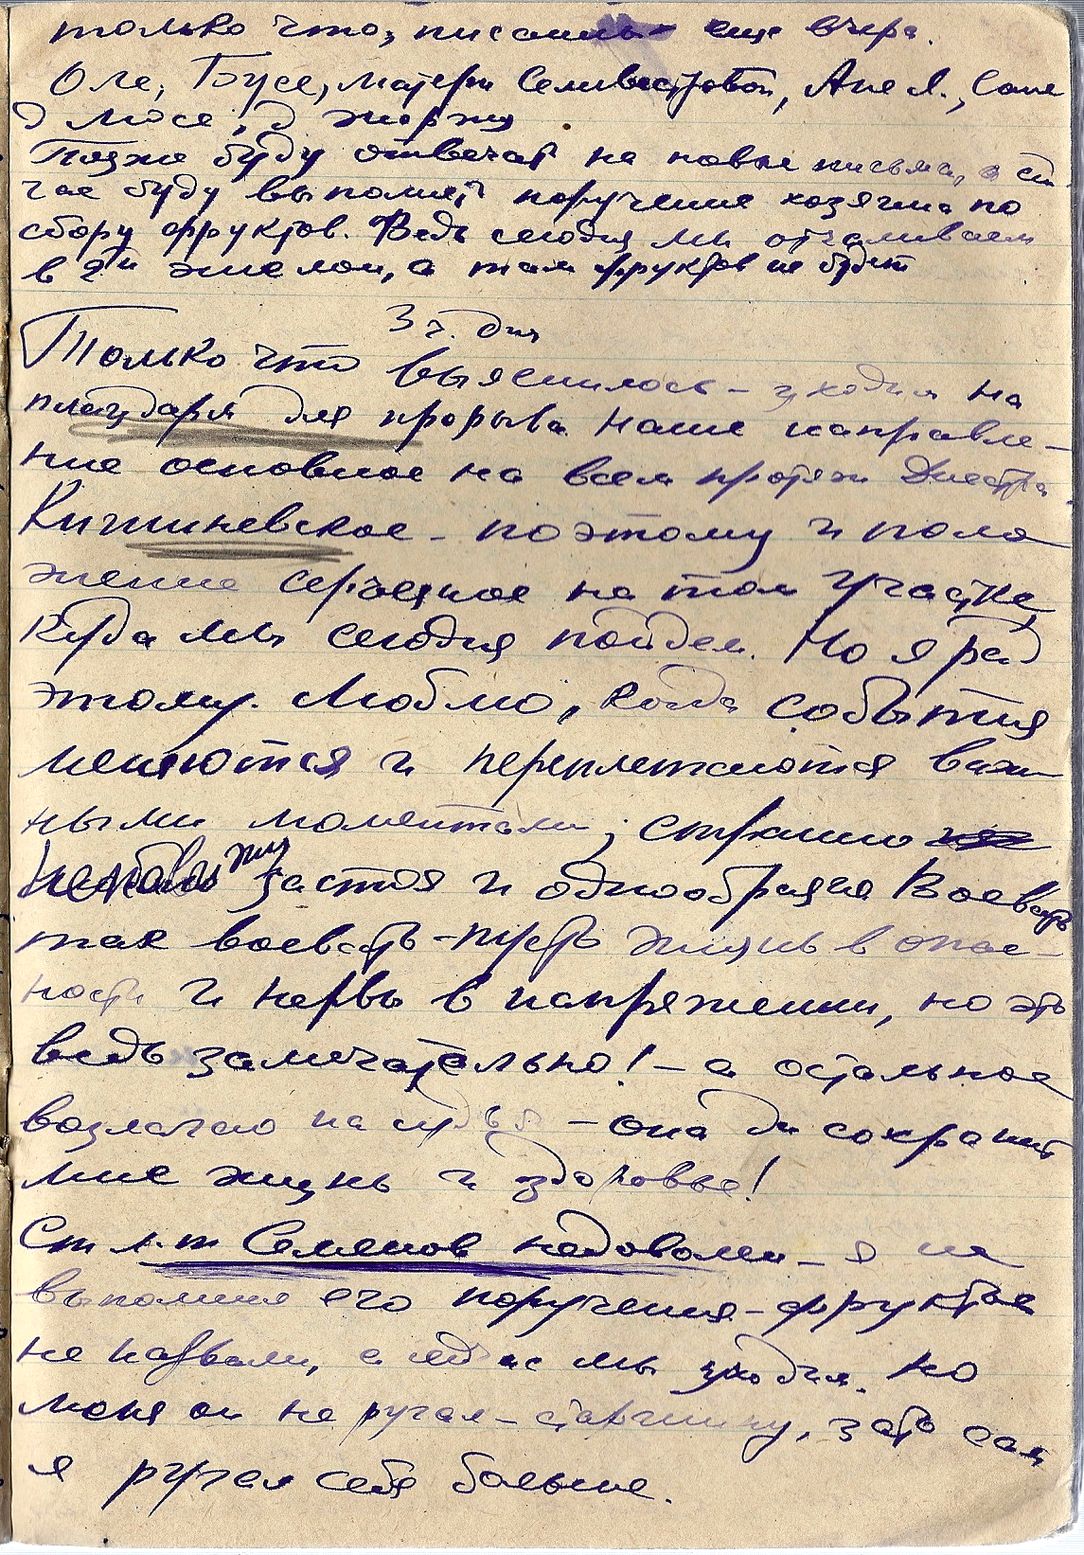 только что, писались еще вчера.
Оле, Бусе, матери Селивестровой, Ане Л., Соне
д Люсе, д Жоржу
Позже буду отвечать на новые письма, а сей-
час буду выполнять поручение хозяина по
сбору фруктов. Ведь сегодня мы отчаливаем
в 2й эшелон, а там фруктов не будет
3 ч. дня
Только что выяснилось – уходим на
плацдарм для прорыва. Наше направле-
ние основное на всем протяж Днестра
Кишиневское – поэтому и поло
жение серьезное на том участке
куда мы сегодня пойдем. Но я рад
этому. Люблю, когда события
меняются и переплетаются важ
ными моментами; страшно
ненавижу застоя и однообразия Воевать
так воевать – пусть жизнь в опас-
ности и нервы в напряжении, но это
ведь замечательно! – а остальное
возлагаю на судьбу – она да сохранит
мне жизнь и здоровье!
Ст л-т Семенов недоволен – я не
выполнил его поручения – фруктов
не нарвали, а сейчас мы уходим. Но
меня он не ругал – старшину, зато сам
я ругал себя больше.